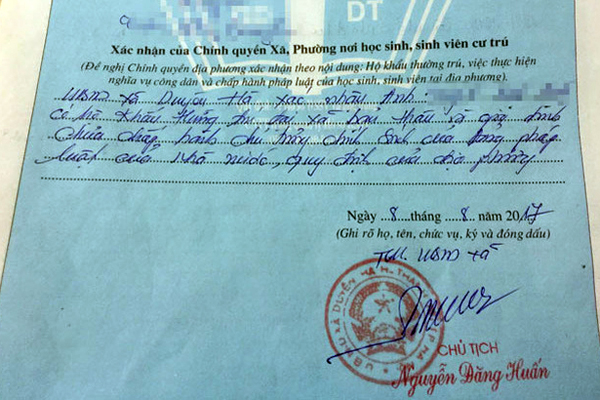 DT
Xác nhận của Chính quyền Xã, Phường nơi học sinh, sinh viên cư trú
(Đề nghị Chính quyền địa phương xác nhận theo nội dung: Hộ khẩu thường trú, việc thực hiện
nghĩa vụ công dân và chấp hành pháp luật của học sinh, sinh viên tại địa phương).
UBND xã Duyên Hà xác nhận Anh:
Có hộ khẩu thường trú tại xã bản thân và gia đình
chưa chấp hành chủ trương chính sách của pháp
luật của nhà nước, quy định của địa phương
Ngày 8 tháng 8 năm 2017
(Ghi rõ họ, tên, chức vụ, ký và đóng dấu)
TM. UBND xã
CHỦ TỊCH
Nguyễn Đăng Huấn